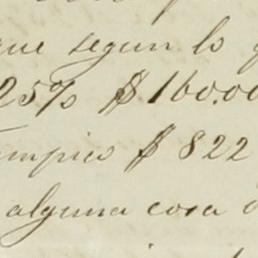 que segun lo q
25% $160.00
Tampico $ 822
alguna cosa d